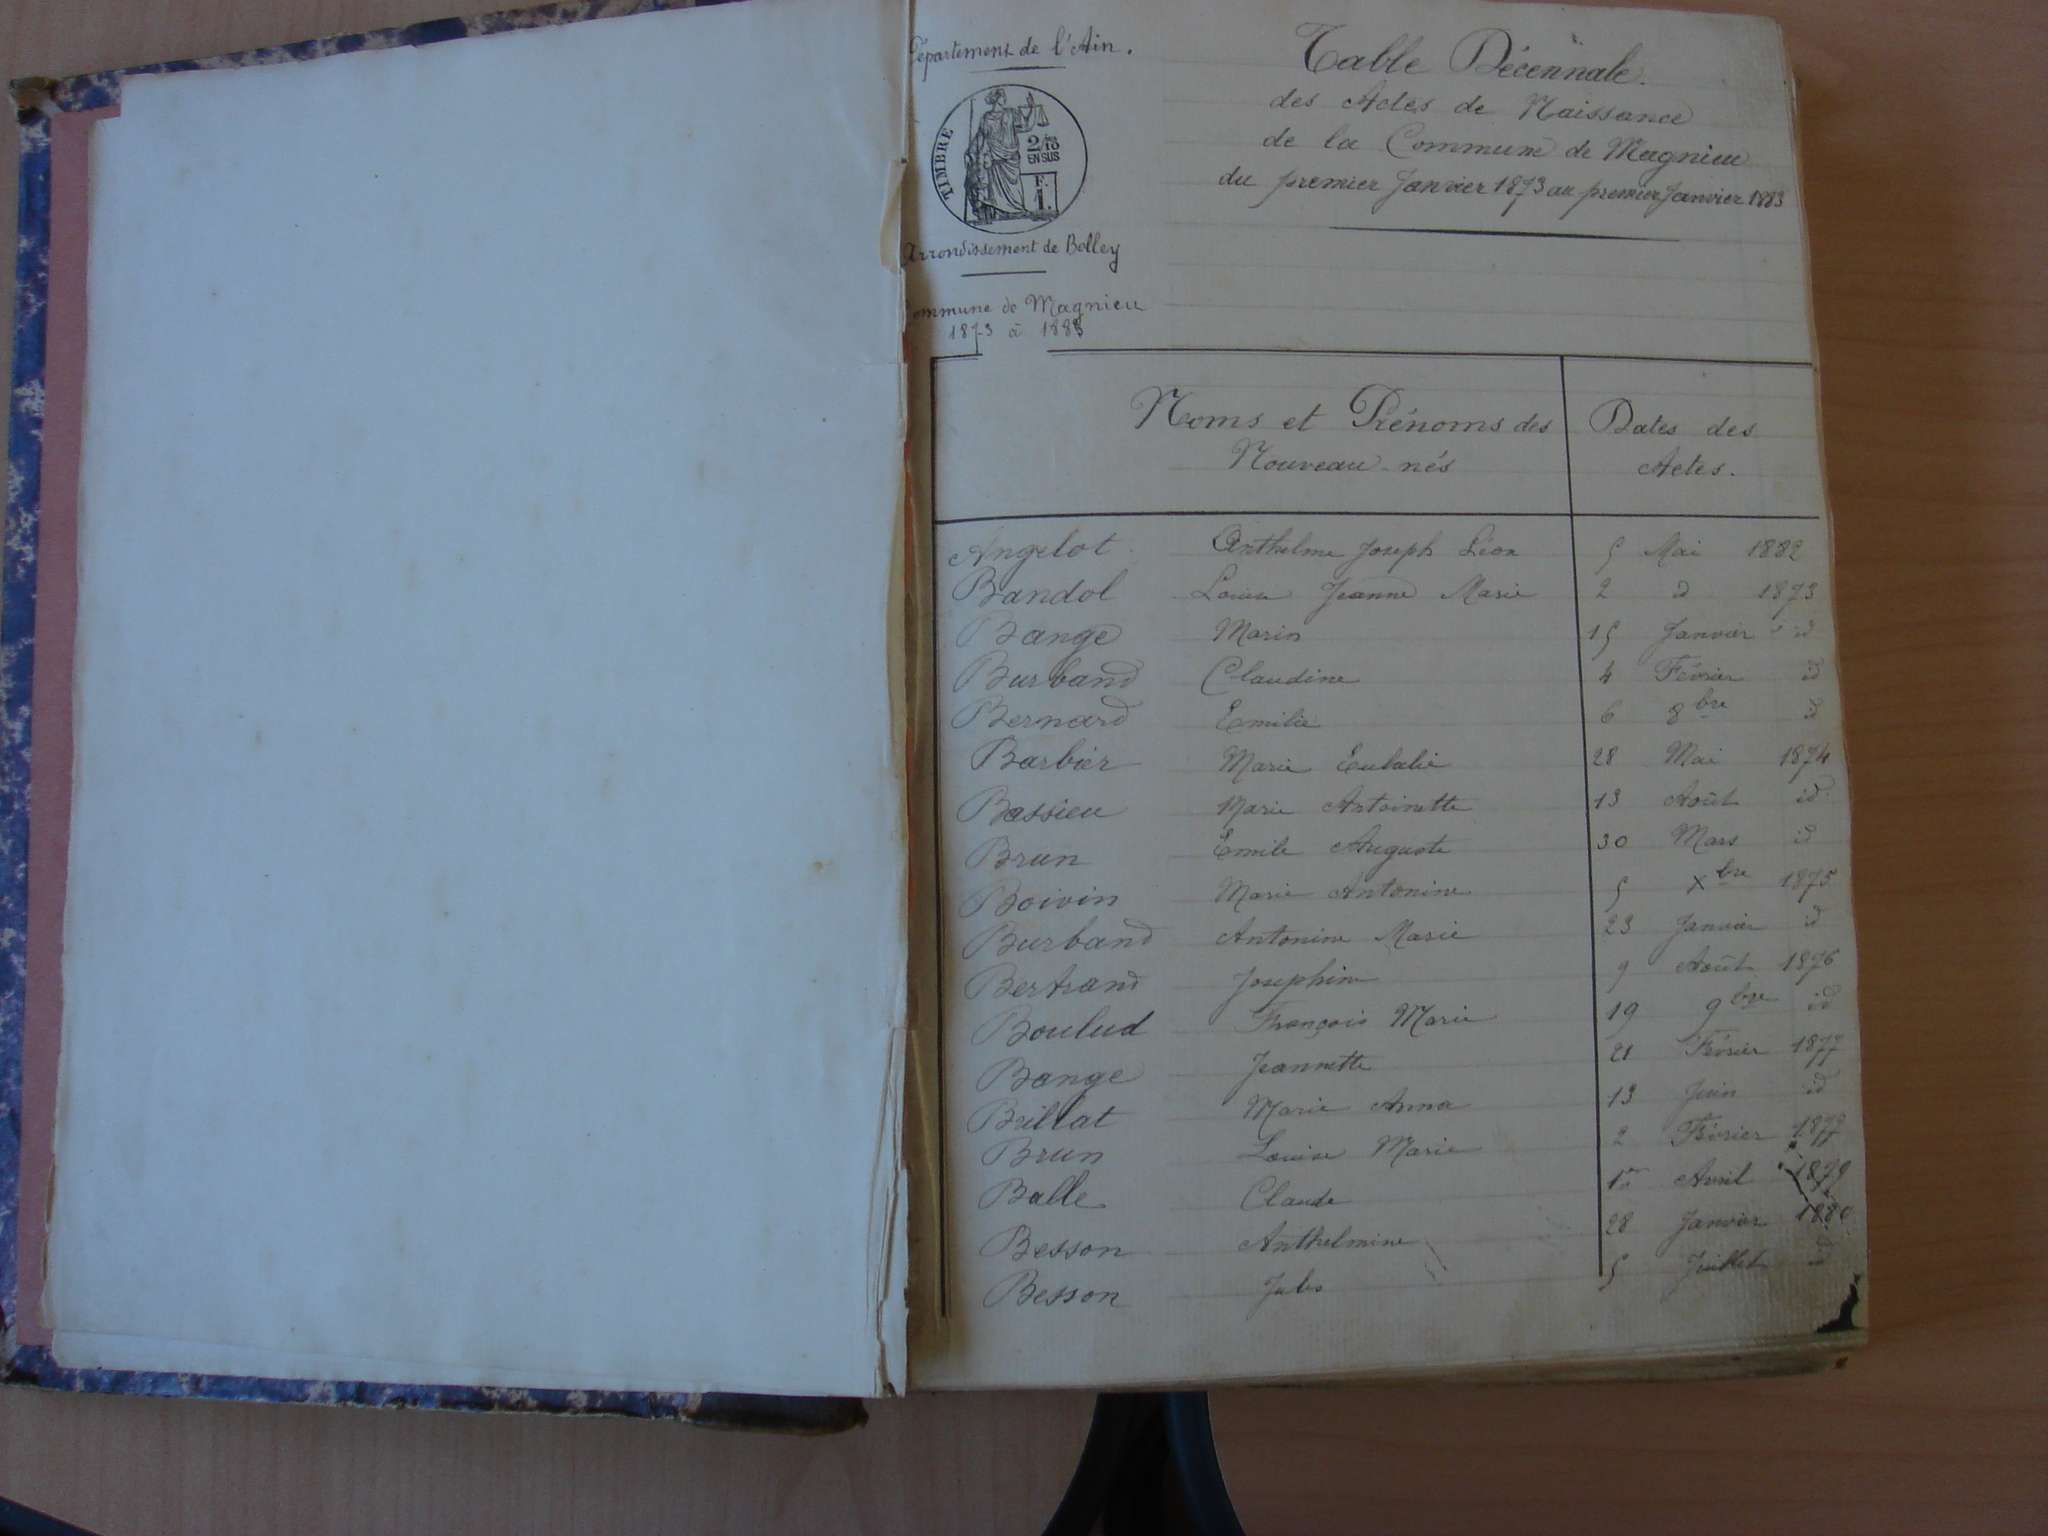 Département de l'Ain.
TIMBRE
2/10
EN SUS
F.
1.
Arrondissement de Belley
Commune de Magnieu
1873 à 1883
Table Décennale.
des Actes de Naissance
de la Commune de Magnieu
du premier Janvier 1873 au premier Janvier 1883
Noms et Prénoms des Nouveau-nés
Dates des Actes.
Angelot Anthelme Joseph Léon 5 Mai 1882
Bandol Louise Jeanne Marie 2 d 1873
Bange Marin 15 Janvier id
Burband Claudine 4 Février id
Bernard Emilie 6 8bre id
Barbier Marie Eulalie 28 Mai 1874
Bassieu Marie Antoinette 13 Août id
Brun Emile Auguste 30 Mars id
Boivin Marie Antonine 5 Xbre 1875
Burband Antonine Marie 23 Janvier id
Bertrand Josephine 9 Août 1876
Boulud François Marie 19 9bre id
Bange Jeannette 21 Février 1877
Brillat Marie Anna 13 Juin id
Brun Louise Marie 2 Février
Balle Claude 1er Avril 1879
Besson Anthelmine 28 Janvier 1880
Besson Jules 5 Juillet id